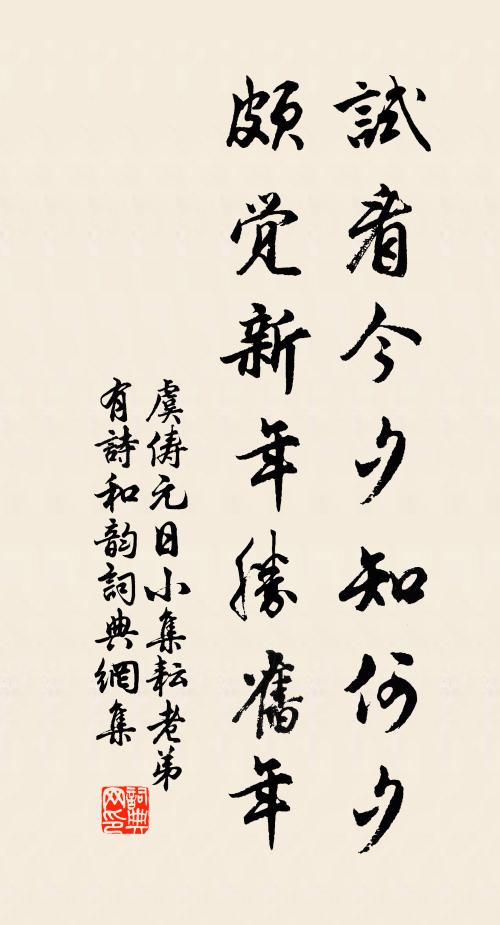 試看今夕知何夕
頗覺新年勝舊年
虞儔元日小集耘老弟
有詩和韵詞典網集
詞典网印